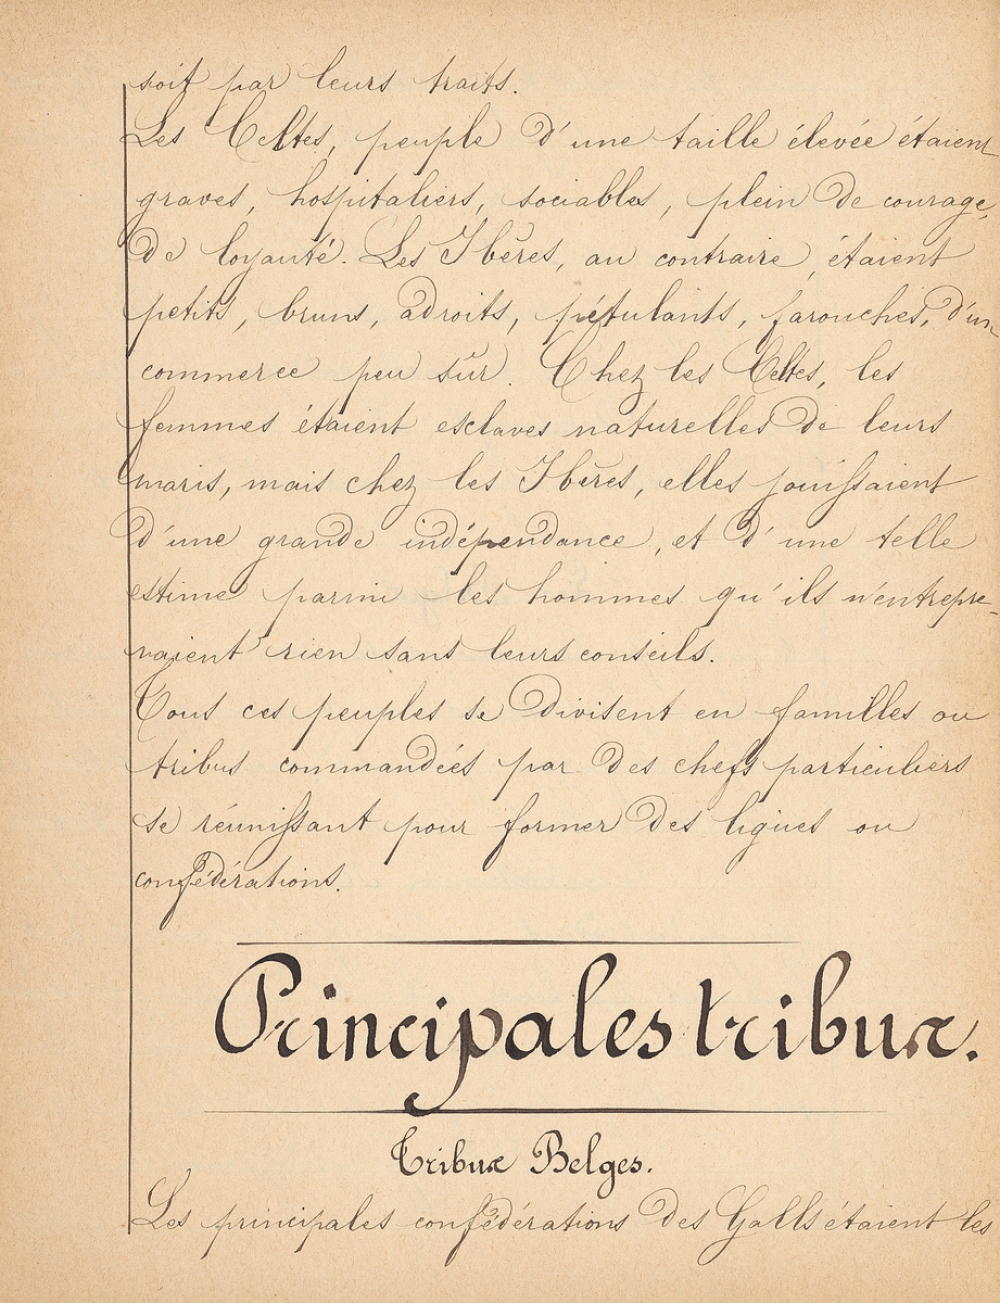 soit par leurs traits.
Les Celtes, peuple d'une taille élevée étaient
graves, hospitaliers, sociables, plein de courage,
de loyauté. Les Ibères, au contraire, étaient
petits, bruns, adroits, pétulants, farouches, d'un
commerce peu sûr. Chez les Celtes, les
femmes étaient esclaves naturelles de leurs
maris, mais chez les Ibères, elles jouissaient
d'une grande indépendance, et d'une telle
estime parmi les hommes qu'ils n'entrepre-
naient rien sans leurs conseils.
Tous ces peuples se divisent en familles ou
tribus commandées par des chefs particuliers
se réunissant pour former des ligues ou
confédérations.
Principales tribux.
Tribux Belges.
Les principales confédérations des Galls étaient les